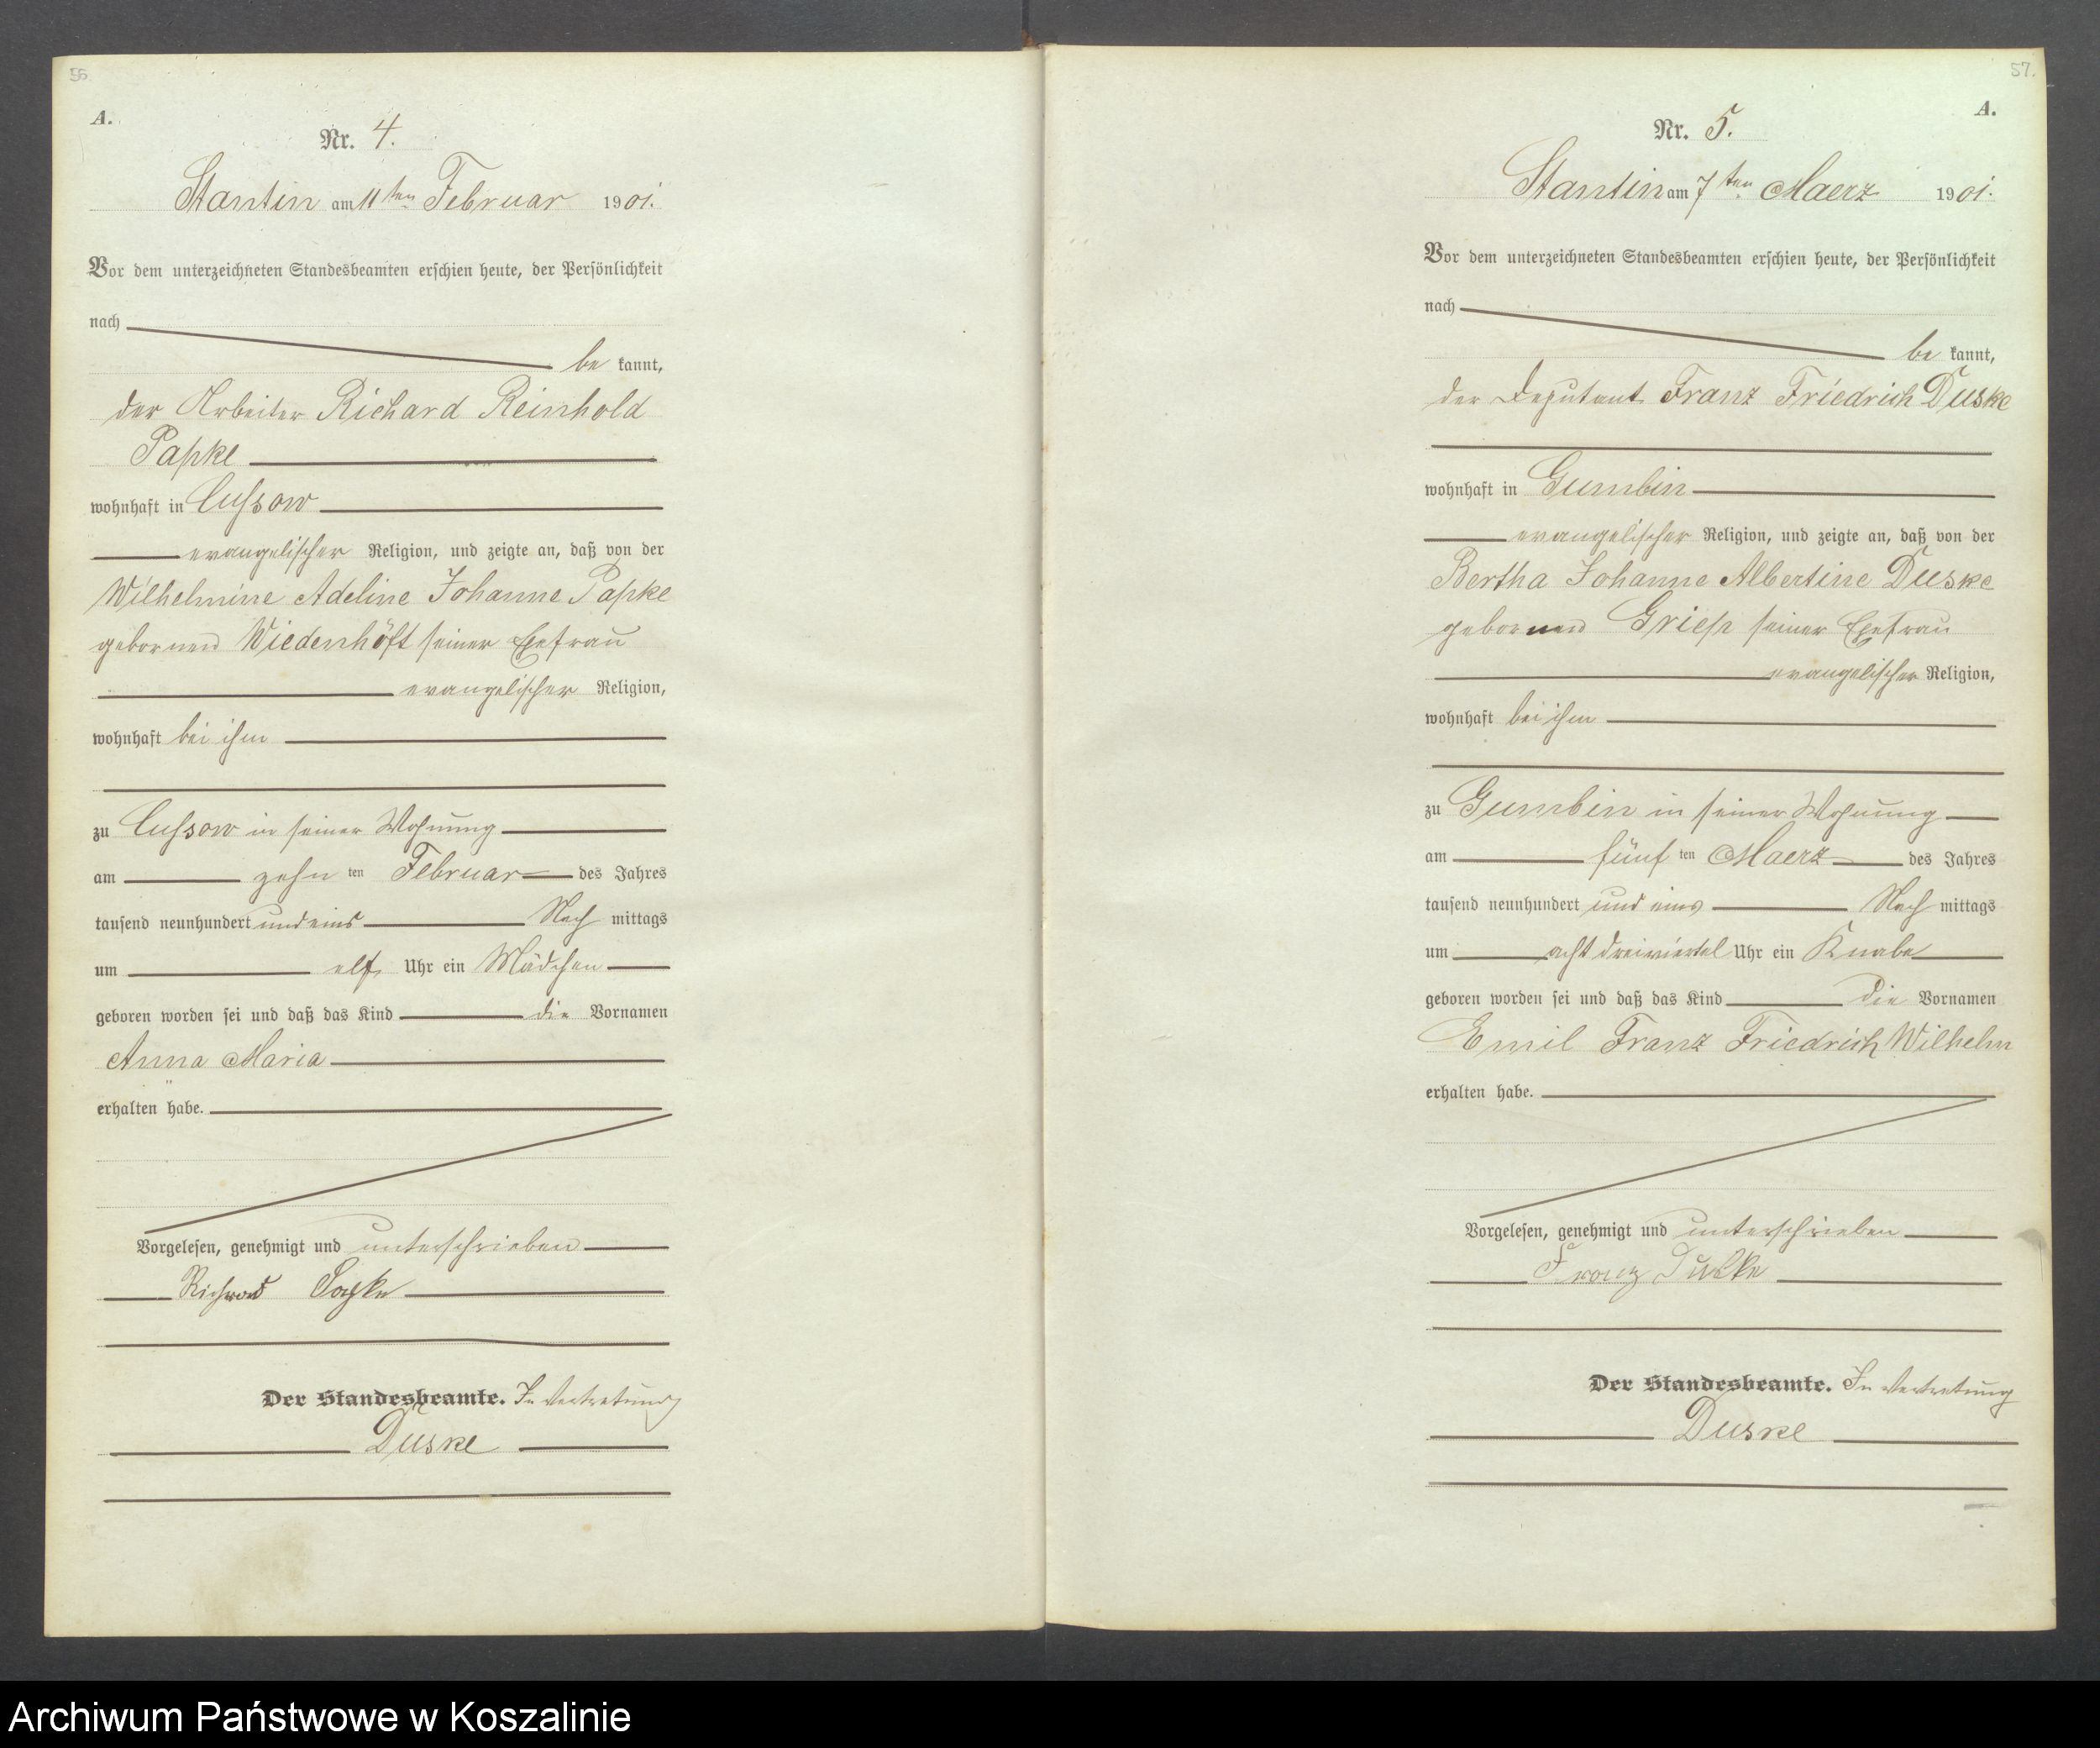 56
A.
Nr. 4.
Stantin am 11ten Februar 1901.
Vor dem unterzeichneten Standesbeamten erschien heute, der Persönlichkeit
nach
be kannt,
der Arbeiter Richard Reinhold
Papke
wohnhaft in Cussow
evangelischer Religion, und zeigte an, daß von der
Wilhelmine Adeline Johanne Papke
gebornen Wiedenhöft seiner Ehefrau
evangelischer Religion,
wohnhaft bei ihm
zu Cussow in seiner Wohnung
am zehn ten Februar des Jahres
tausend neunhundert und eins Nach mittags
um elf Uhr ein Mädchen
geboren worden sei und daß das Kind die Vornamen
Anna Maria
erhalten habe.
Vorgelesen, genehmigt und unterschrieben
Richard Papke
Der Standesbeamte. In Vertretung
Duske
57.
A.
Nr. 5.
Stantin am 7ten Maerz 1901.
Vor dem unterzeichneten Standesbeamten erschien heute, der Persönlichkeit
nach
be kannt,
der Deputant Franz Friedrich Duske
wohnhaft in Gumbin
evangelischer Religion, und zeigte an, daß von der
Bertha Johanne Albertine Duske
gebornen Griep seiner Ehefrau
evangelischer Religion,
wohnhaft bei ihm
zu Gumbin in seiner Wohnung
am fünf ten Maerz des Jahres
tausend neunhundert und eins Nach mittags
um acht dreiviertel Uhr ein Knabe
geboren worden sei und daß das Kind die Vornamen
Emil Franz Friedrich Wilhelm
erhalten habe.
Vorgelesen, genehmigt und unterschrieben
Franz Duske
Der Standesbeamte. In Vertretung
Duske
Archiwum Państwowe w Koszalinie